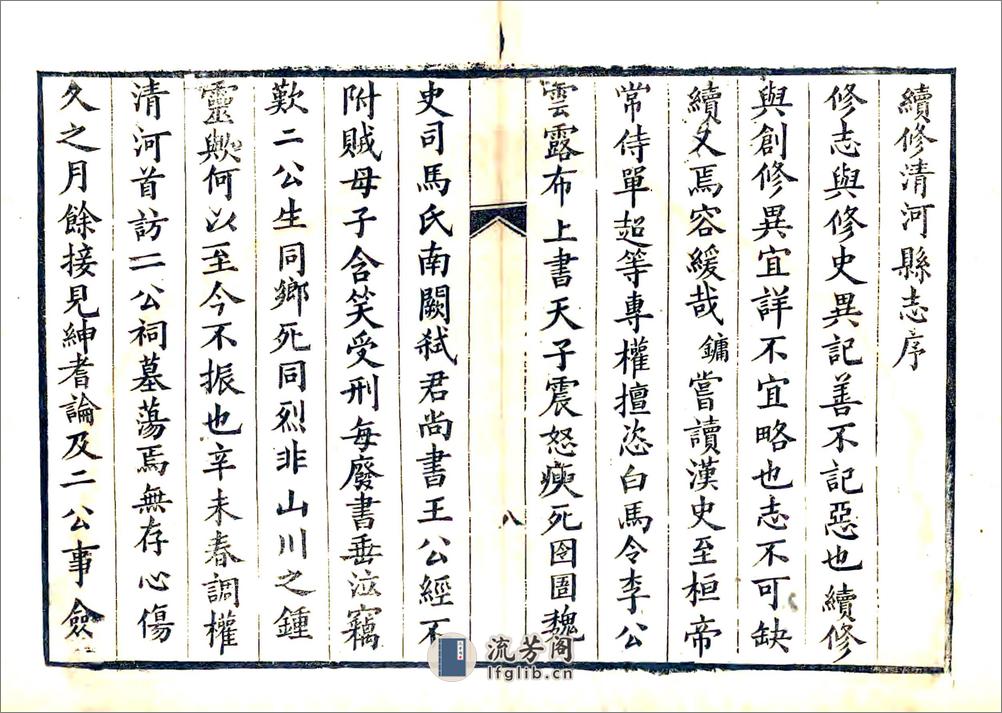 續修清河縣志序
修志與修史異記善不記惡也續修
與創修異宜詳不宜略也志不可缺
續又焉容緩哉鏞嘗讀漢史至桓帝
常侍單超等專權擅恣白馬令李公
雲露布上書天子震怒瘐死囹圄魏
史司馬氏南闕弒君尚書王公經不
附賊母子含笑受刑每廢書垂泣竊
歎二公生同鄉死同烈非山川之鍾
靈歟何以至今不振也辛未春調權
清河首訪二公祠墓蕩焉無存心傷
久之月餘接見紳耆論及二公事僉
八
流芳阁
lfglib.cn